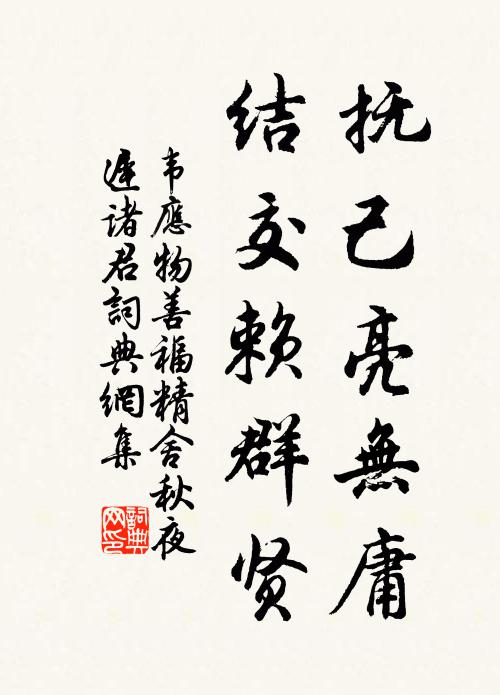 抚己亮無庸
结交赖群贤
韦應物善福精舍秋夜
遲诸君詞典網集
詞典网印